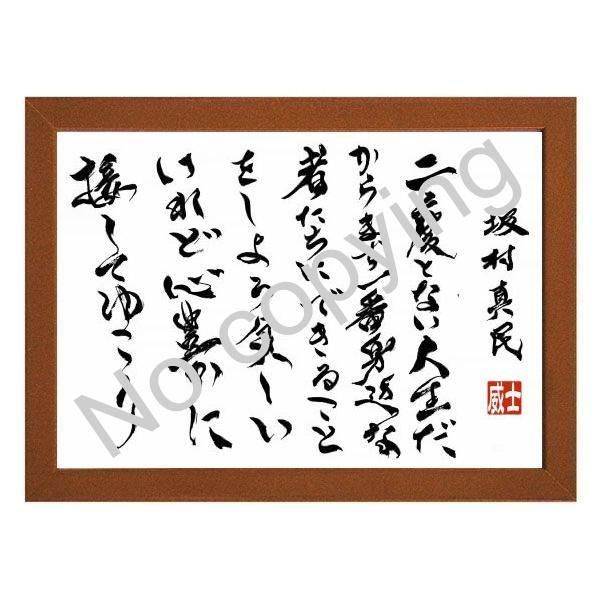 坂村真民
二度とない人生だ
からまず一番身近な
者たちにできること
をしよう貧しい
けれど心豊かに
接してゆこう
威士
No copying